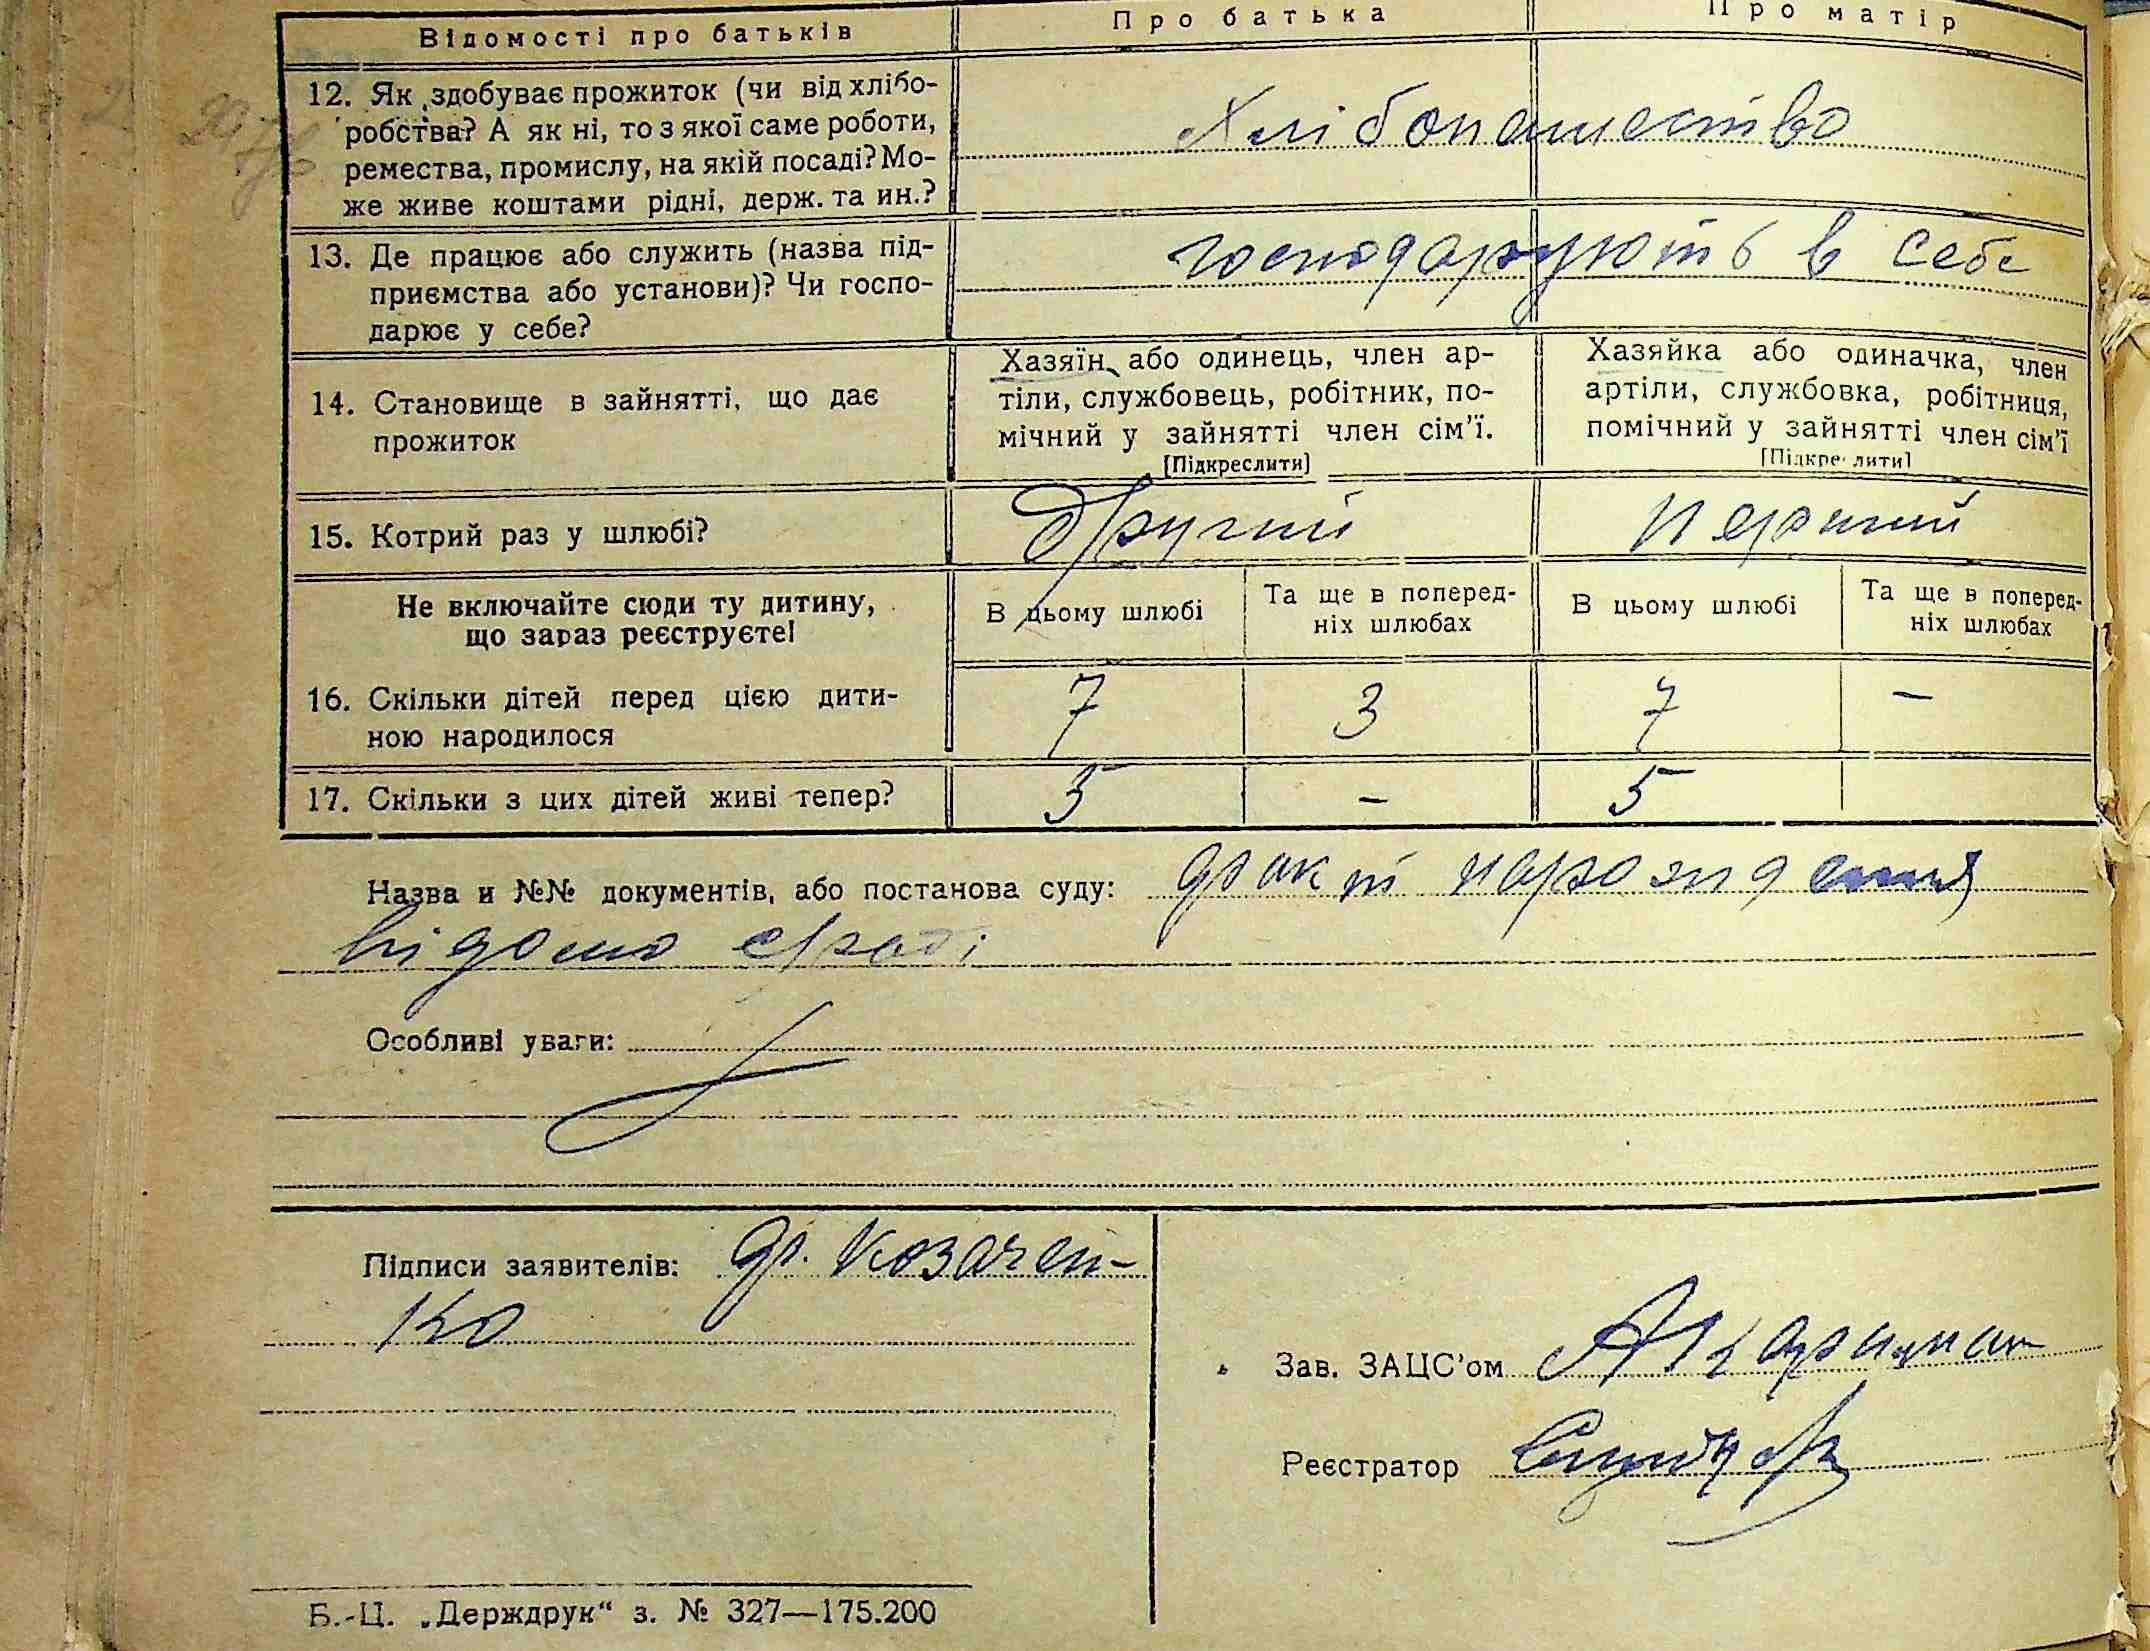 Відомості про батьків
Про батька
Про матір
12. Як здобуває прожиток (чи від хлібо-
робства? А як ні, то з якої саме роботи,
ремества, промислу, на якій посаді? Мо-
же живе коштами рідні, держ. та ин.?
Хлібопашество
13. Де працює або служить (назва під-
приємства або установи)? Чи госпо-
дарює у себе?
господарують в себе
14. Становище в зайнятті, що дає
прожиток
Хазяїн, або одинець, член ар-
тіли, службовець, робітник, по-
мічний у зайнятті член сім'ї.
[Підкреслити]
Хазяйка або одиначка, член
артіли, службовка, робітниця,
помічний у зайнятті член сім'ї
[Підкреслити]
15. Котрий раз у шлюбі?
другий
перший
Не включайте сюди ту дитину,
що зараз реєструєте!
В цьому шлюбі
Та ще в поперед-
ніх шлюбах
В цьому шлюбі
Та ще в поперед-
ніх шлюбах
16. Скільки дітей перед цією дити-
ною народилося
7
3
7
—
17. Скільки з цих дітей живі тепер?
5
—
5
Назва и №№ документів, або постанова суду: факт народження
відомо с/раді
Особливі уваги:
Підписи заявителів: гр. Козачен-
ко
Зав. ЗАЦС'ом
Реєстратор
Б.-Ц. „Держдрук" з. № 327—175.200